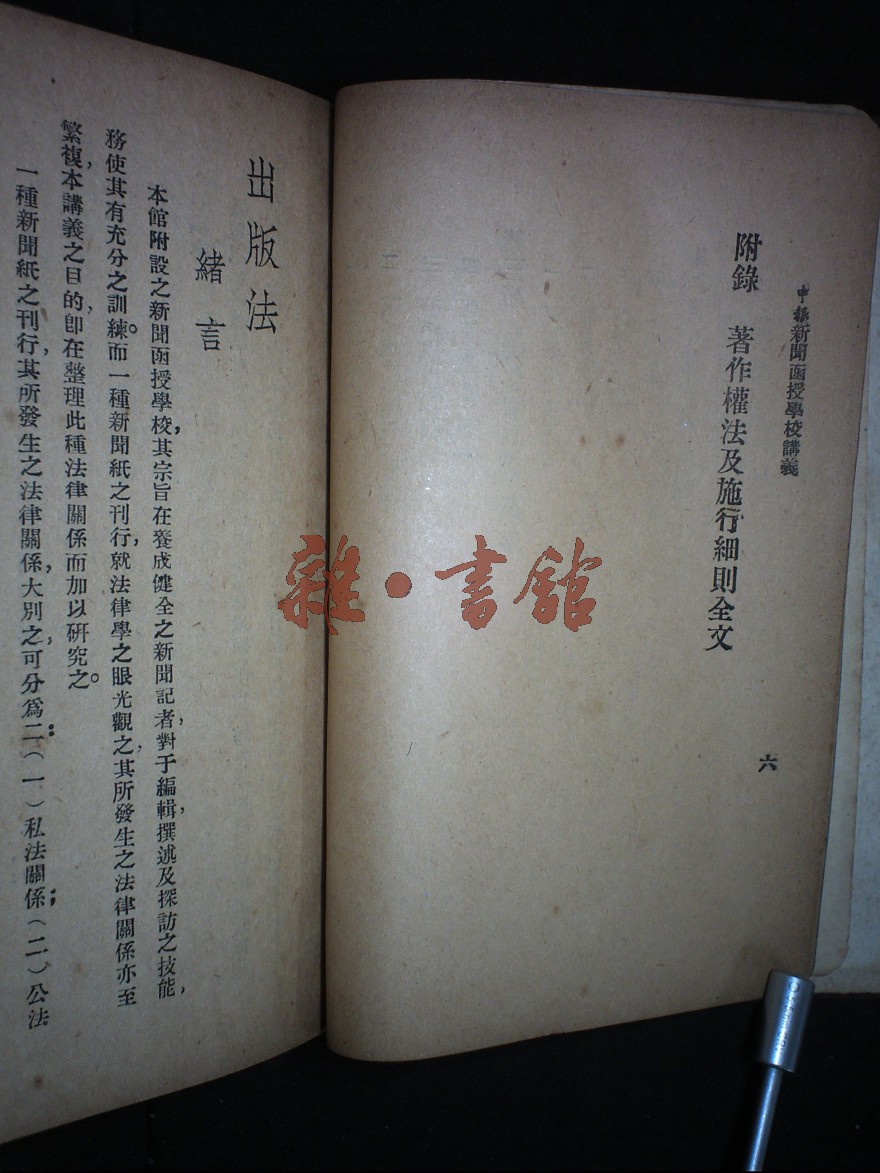 申報新聞函授學校講義
附錄 著作權法及施行細則全文
六
出版法
緒言
本館附設之新聞函授學校,其宗旨在養成健全之新聞記者,對于編輯撰述及採訪之技能,
務使其有充分之訓練。而一種新聞紙之刊行,就法律學之眼光觀之,其所發生之法律關係亦至
繁複,本講義之目的,卽在整理此種法律關係而加以研究之。
一種新聞紙之刊行,其所發生之法律關係,大別之,可分爲二:(一)私法關係;(二)公法
雜·書館